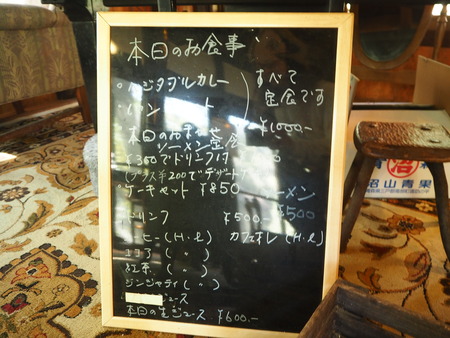 本日のお食事
・ベジタブルカレー
すべて
定食です
¥1000-
本日のおまかせ
ソーメン定食
¥300でドリンク付
(プラス¥200でデザート
ケーキセット ¥850
ーメン
¥500
ドリンク ¥500-
ーヒー(H・I) カフェオレ(H・I)
ココア(〃)
紅茶(〃)
ジンジャティ(〃)
ジュース
本日の生ジュース ¥600.-
沼山青果